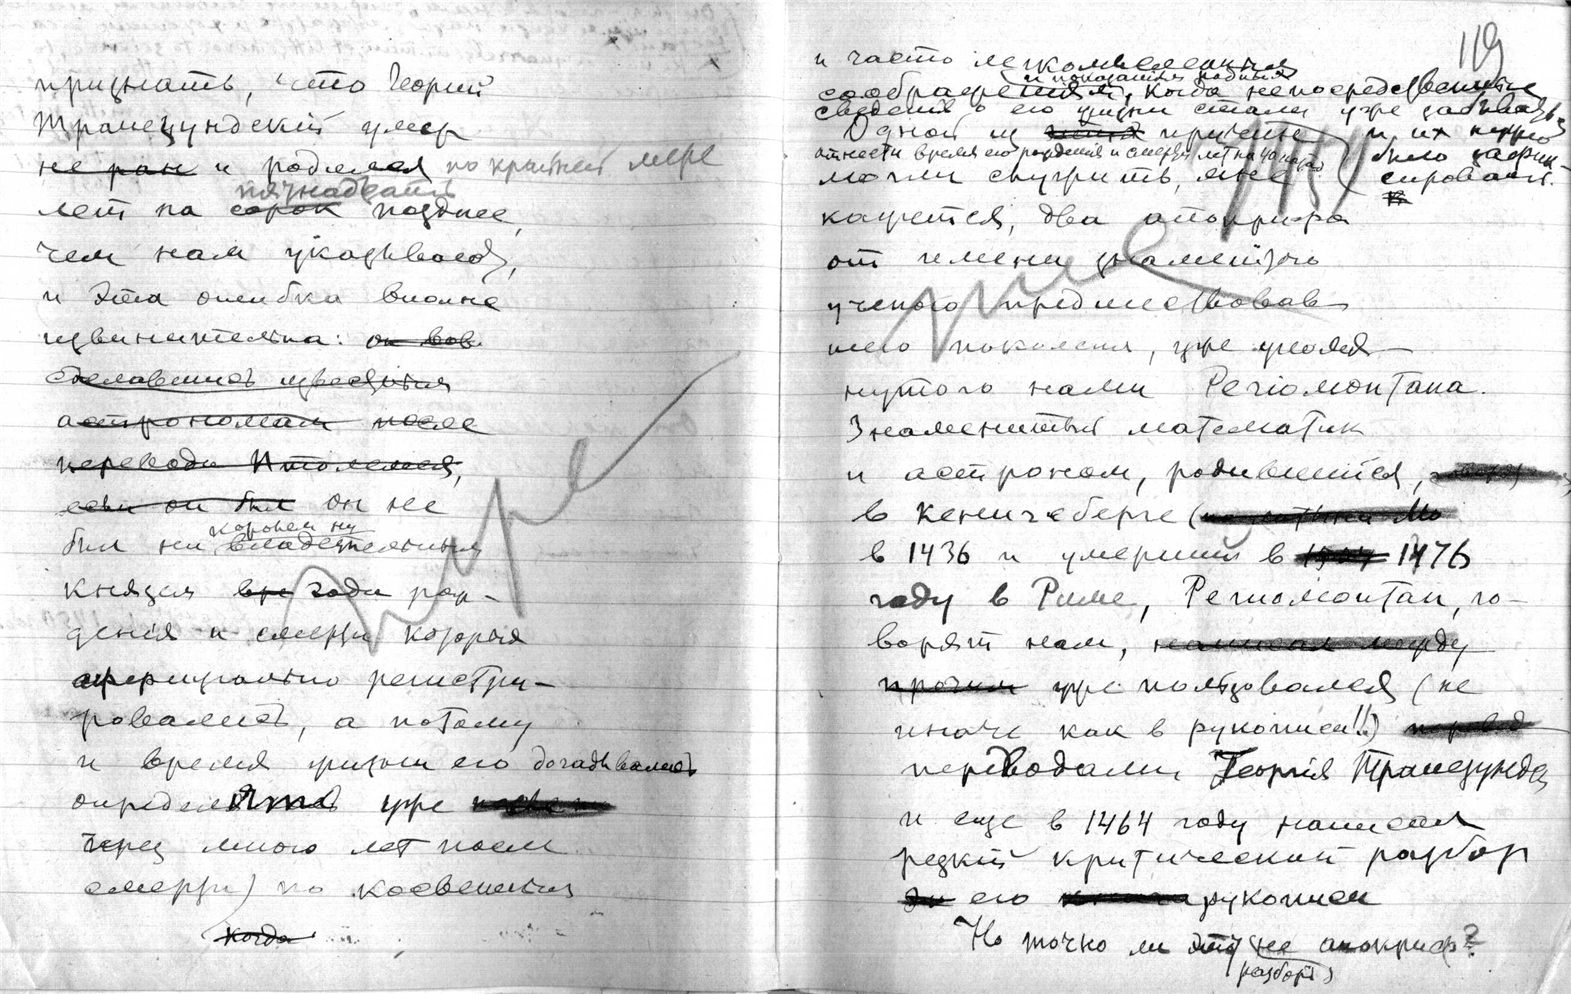 признать, что Георгий
Трапезундский умер
не ран и родился по крайней мере
пятнадцать
лет на сорок позднее,
чем нам указывают,
и эта ошибка вполне
извинительна: он
сделавшись известным
астрономам после
перевода Птолемея,
если он был он не
королем ни
был ни владетельным
князем вре года рож-
дения и смерти которых
официально регистри-
ровались, а потому
и время жизни его догадывались
определять уже
через много лет после
смерти) по косвенным
когда
119
и часто легкомысленным
и показаниям
соображениям, когда непосредственные
сведения о его жизни стали уже забывать
Одной из причин и их
отнести время его рождения и смерти лет на
могли служить, мне
кажется, два апокрифа
от имени знаменитого
ученого предшествовав
шего поколения, уже упомя-
нутого нами Региомонтана.
Знаменитый математик
и астроном, родившийся,
в Кенигсберге (
в 1436 и умерший в 1476
году в Риме, Региомонтан, го-
ворят нам, написал между
прочим уже пользовался (не
иначе как в рукописи!!) перевод
переводами Георгия Трапезунда
и еще в 1464 году написал
резкий критический разбор
его рукописи
Но точно ли это не апокриф?
разбор